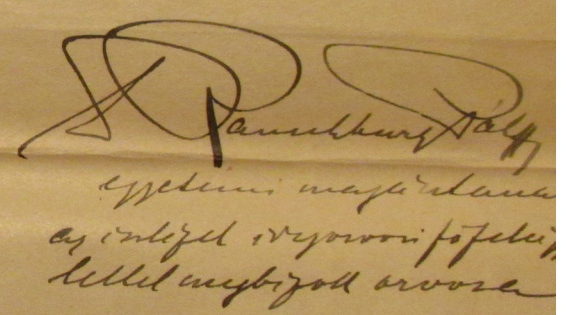 Dr Ranschburg Pál
egyetemi magántanár
az intézet idegorvosi főfelügy
lettel megbízott orvosa